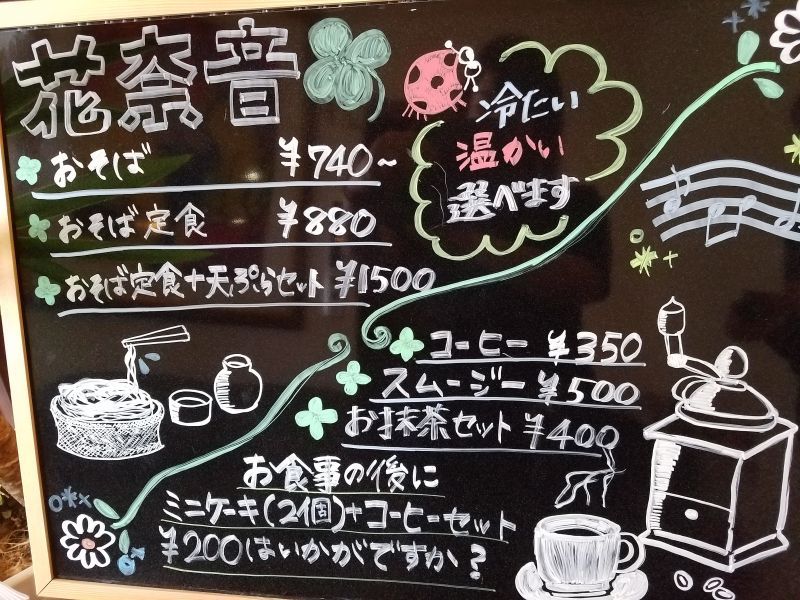 花奈音
おそば ¥740~
おそば定食 ¥880
おそば定食+天ぷらセット ¥1500
冷たい
温かい
選べます
コーヒー ¥350
スムージー ¥500
お抹茶セット ¥400
お食事の後に
ミニケーキ(2個)+コーヒーセット
¥200はいかがですか?